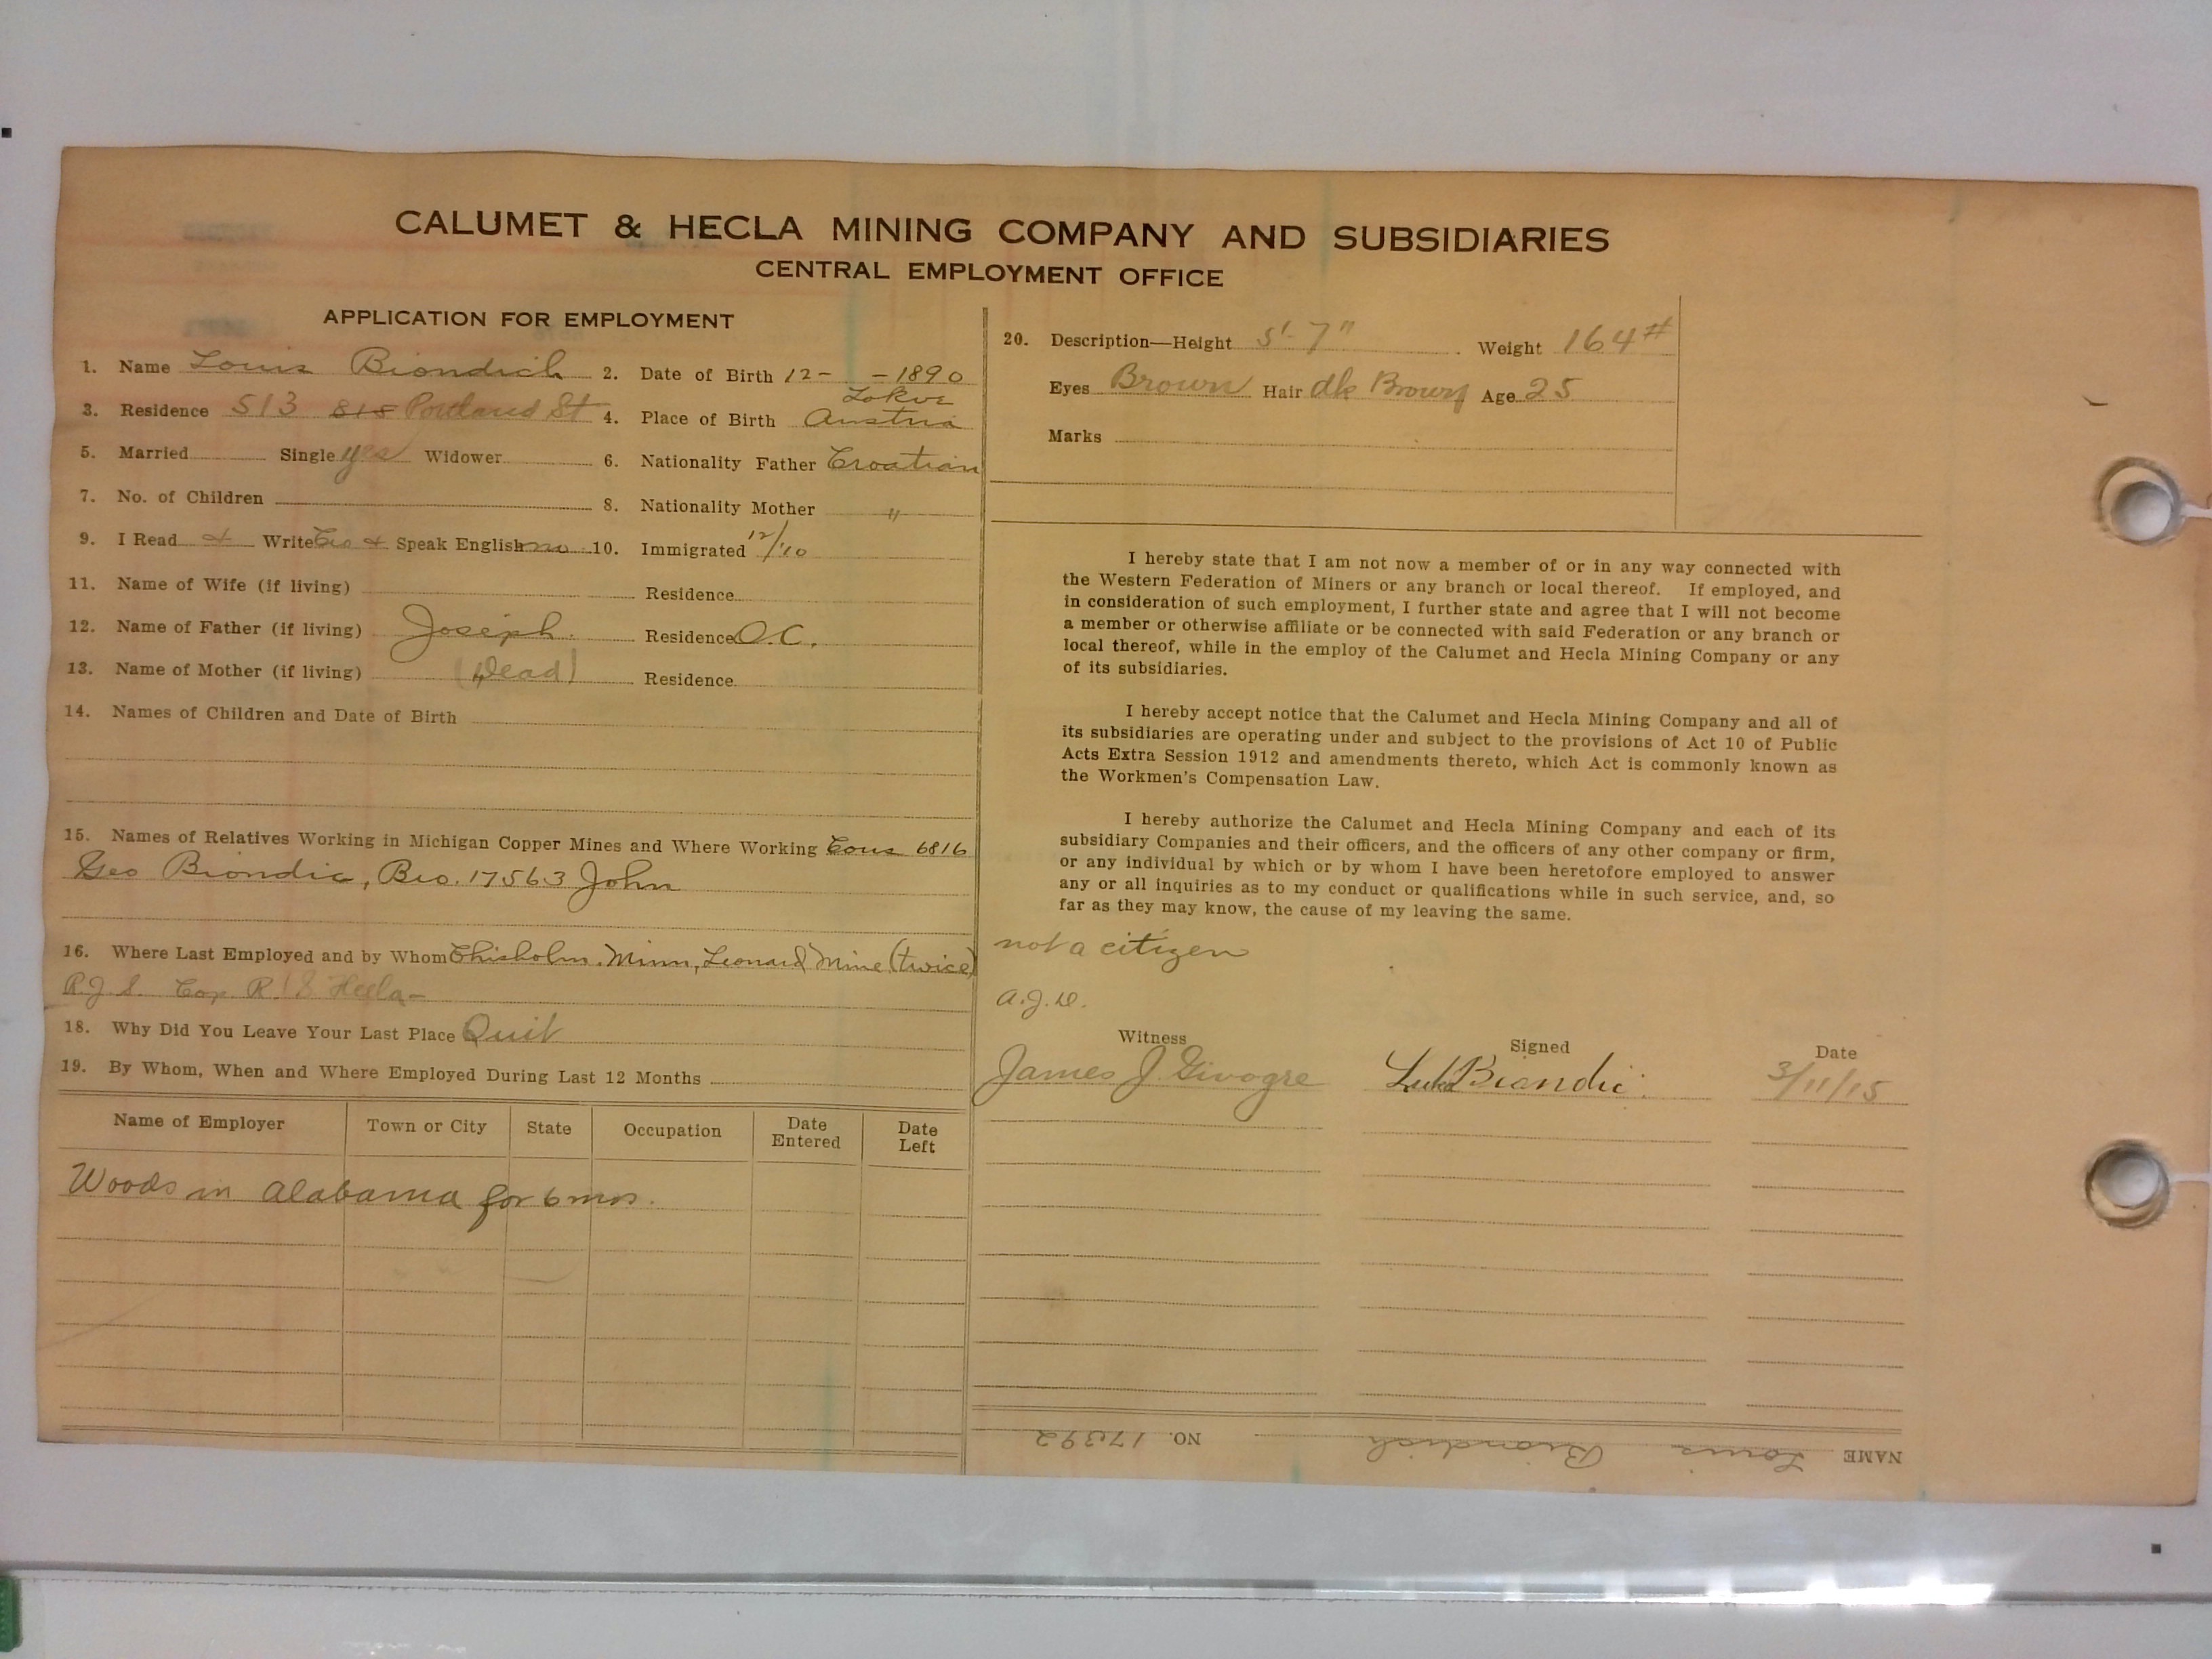 CALUMET & HECLA MINING COMPANY AND SUBSIDIARIES
CENTRAL EMPLOYMENT OFFICE
APPLICATION FOR EMPLOYMENT
1. Name Louis Biondich 2. Date of Birth 12- -1890
3. Residence 513 815 Portland St 4. Place of Birth Lokve Austria
5. Married Single yes Widower 6. Nationality Father Croatian
7. No. of Children 8. Nationality Mother "
9. I Read & Write Cro & Speak English no 10. Immigrated 12/'10
11. Name of Wife (if living) Residence
12. Name of Father (if living) Joseph Residence O.C.
13. Name of Mother (if living) (Dead) Residence
14. Names of Children and Date of Birth
15. Names of Relatives Working in Michigan Copper Mines and Where Working Cous 6816
Geo Biondic, Bro. 17563 John
16. Where Last Employed and by Whom Chisholm, Minn, Leonard Mine (twice)
R.J.S. Cop. R. 18 Hecla-
18. Why Did You Leave Your Last Place Quit
19. By Whom, When and Where Employed During Last 12 Months
Name of Employer Town or City State Occupation Date Entered Date Left
Woods in Alabama for 6 mos.
20. Description—Height 5'-7" Weight 164#
Eyes Brown Hair dk Brown Age 25
Marks
I hereby state that I am not now a member of or in any way connected with
the Western Federation of Miners or any branch or local thereof. If employed, and
in consideration of such employment, I further state and agree that I will not become
a member or otherwise affiliate or be connected with said Federation or any branch or
local thereof, while in the employ of the Calumet and Hecla Mining Company or any
of its subsidiaries.
I hereby accept notice that the Calumet and Hecla Mining Company and all of
its subsidiaries are operating under and subject to the provisions of Act 10 of Public
Acts Extra Session 1912 and amendments thereto, which Act is commonly known as
the Workmen's Compensation Law.
I hereby authorize the Calumet and Hecla Mining Company and each of its
subsidiary Companies and their officers, and the officers of any other company or firm,
or any individual by which or by whom I have been heretofore employed to answer
any or all inquiries as to my conduct or qualifications while in such service, and, so
far as they may know, the cause of my leaving the same.
not a citizen
a.J.D.
Witness Signed Date
James J. Givogre Luka Biondic 3/11/15
NAME Louis Biondich NO. 17392